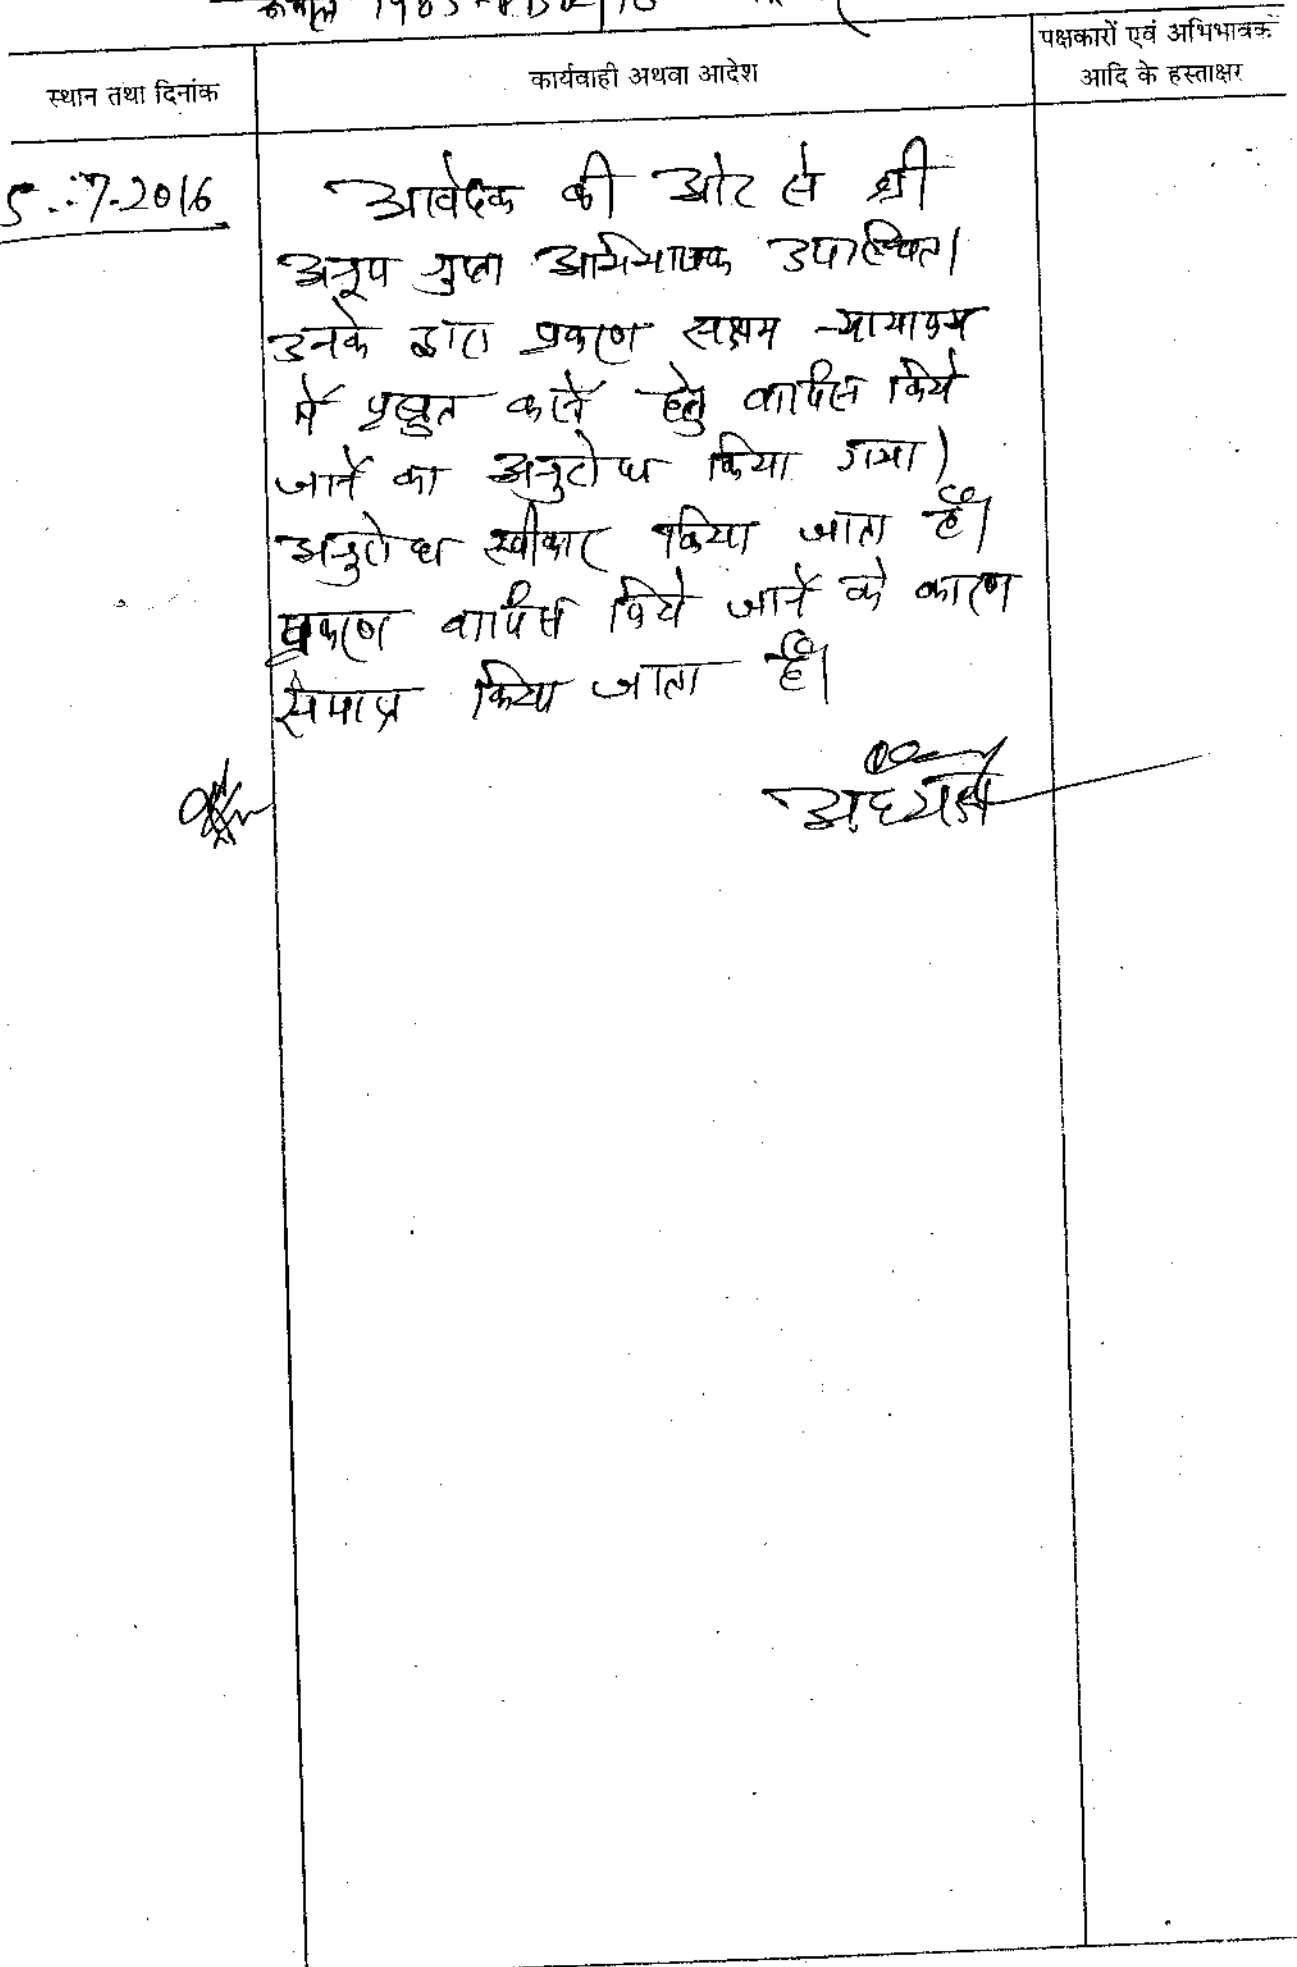 स्थान तथा दिनांक
कार्यवाही अथवा आदेश
पक्षकारों एवं अभिभावकों
आदि के हस्ताक्षर
5-7-2016
आवेदक की ओर से श्री
अनूप गुप्ता अभिभाषक उपस्थित।
उनके द्वारा प्रकरण सक्षम न्यायालय
में प्रस्तुत करने हेतु वापिस किये
जाने का अनुरोध किया गया।
अनुरोध स्वीकार किया जाता है।
प्रकरण वापिस लिये जाने के कारण
समाप्त किया जाता है।
अध्यक्ष